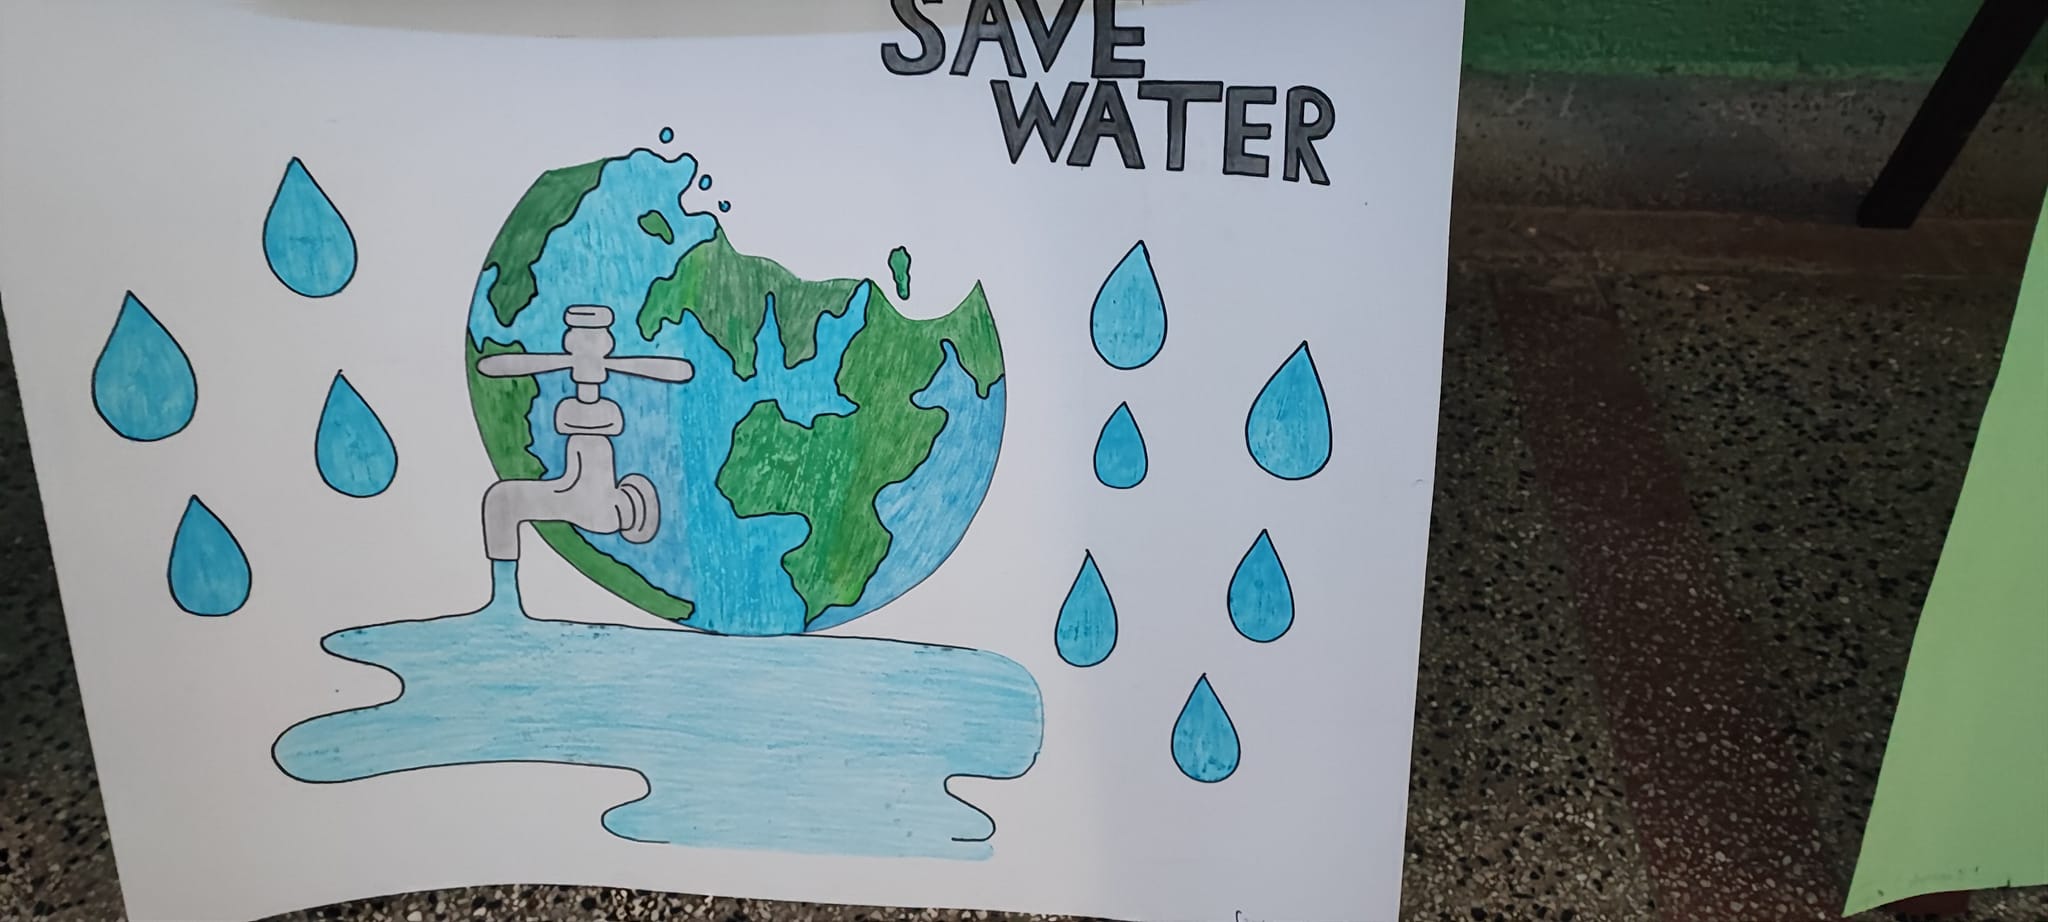 SAVE
WATER